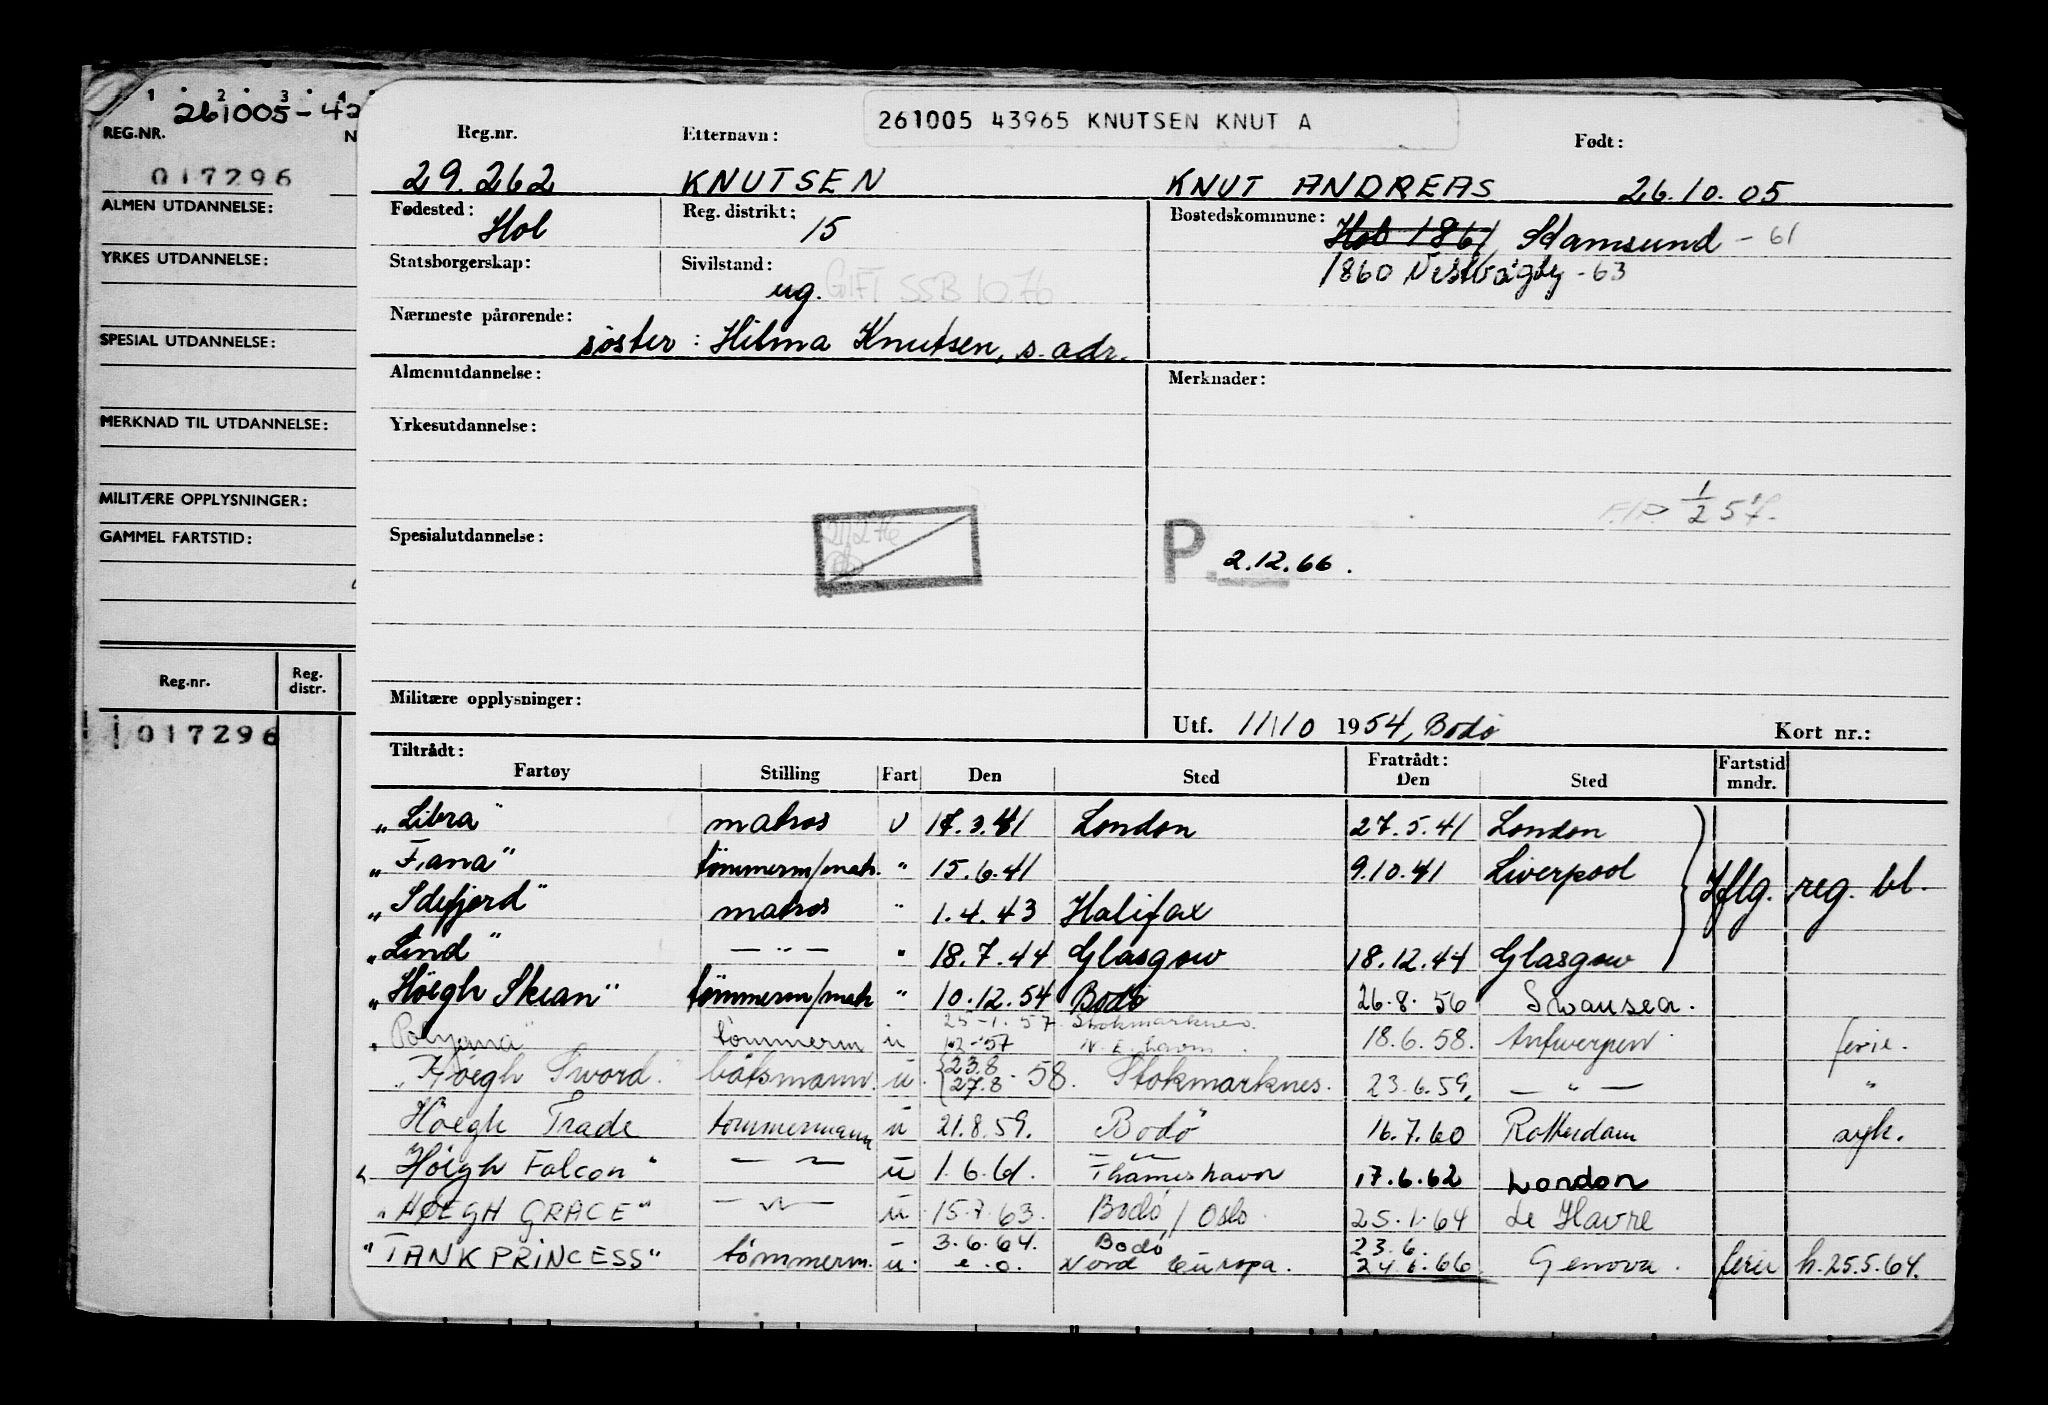 1 2 3 4
261005-42
REG.NR.
N
017296
ALMEN UTDANNELSE:
YRKES UTDANNELSE:
SPESIAL UTDANNELSE:
MERKNAD TIL UTDANNELSE:
MILITÆRE OPPLYSNINGER:
GAMMEL FARTSTID:
Reg.nr. Reg. distr.
017296
261005 43965 KNUTSEN KNUT A
Reg.nr. Etternavn: Født:
29.262 KNUTSEN KNUT ANDREAS 26.10.05
Fødested: Hol Reg. distrikt: 15 Bostedskommune: Hol 1861, Stamsund - 61
1860 Vestvågøy - 63
Statsborgerskap: Sivilstand: ug. GIFT SSB 1076
Nærmeste pårørende: søster: Hilma Knutsen, s. adr.
Almenutdannelse: Merknader:
Yrkesutdannelse:
1/2 57.
Spesialutdannelse: P. 2.12.66.
Militære opplysninger:
Utf. 11/10 1954, Bodø Kort nr.:
Tiltrådt: Fratrådt:
Fartøy Stilling Fart Den Sted Den Sted Fartstid mndr.
"Libra" matros U 17.3.41 London 27.5.41 London
"Fana" tømmerm/matr. " 15.6.41 9.10.41 Liverpool Iflg. reg. bl.
"Idefjord" matros " 1.4.43 Halifax
"Lind" — " — " 18.7.44 Glasgow 18.12.44 Glasgow
"Høegh Skean" tømmerm/matr " 10.12.54 Bodø 26.8.56 Swansea.
25-1-57 Stokmarknes.
"Polyana" tømmerm u 18.6.58. Antwerpen ferie.
"Høegh Sword." båtsmann. u. 23.8 27.8 - 58. Stokmarknes. 23.6.59, — " — "
Høegh Trade tømmermann u 21.8.59. Bodø 16.7.60 Rotterdam syk.
"Høigh Falcon" — " — u 1.6.61. Thameshavn 17.6.62 London
"HØEGH GRACE" — " — u. 15.7.63. Bodø / Oslo. 25.1.64 Le Havre
"TANK PRINCESS" tømmerm. u. 3.6.64. Bodø 23.6.
e.o. Nord Europa. 24.6.66 Genova. ferie h.25.5.64.